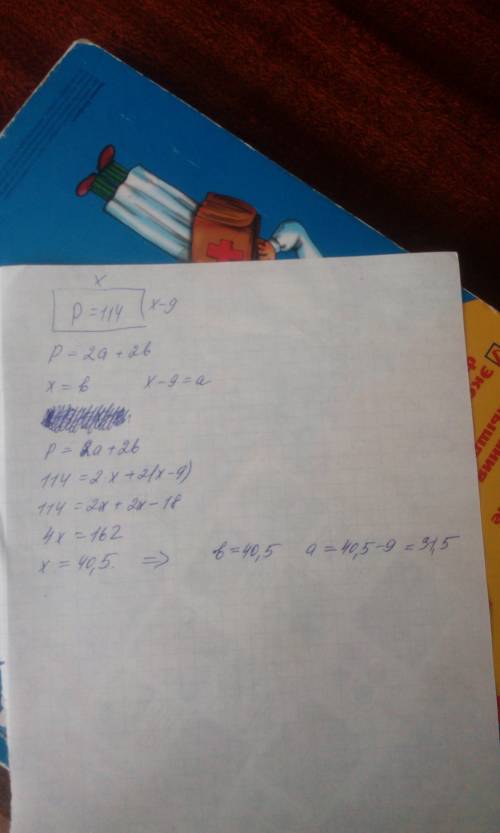 x
P = 114 x-9
P = 2a + 2b
x = b x-9 = a
P = 2a + 2b
114 = 2·x + 2(x-9)
114 = 2x + 2x - 18
4x = 162
x = 40,5. => b = 40,5 a = 40,5 - 9 = 31,5